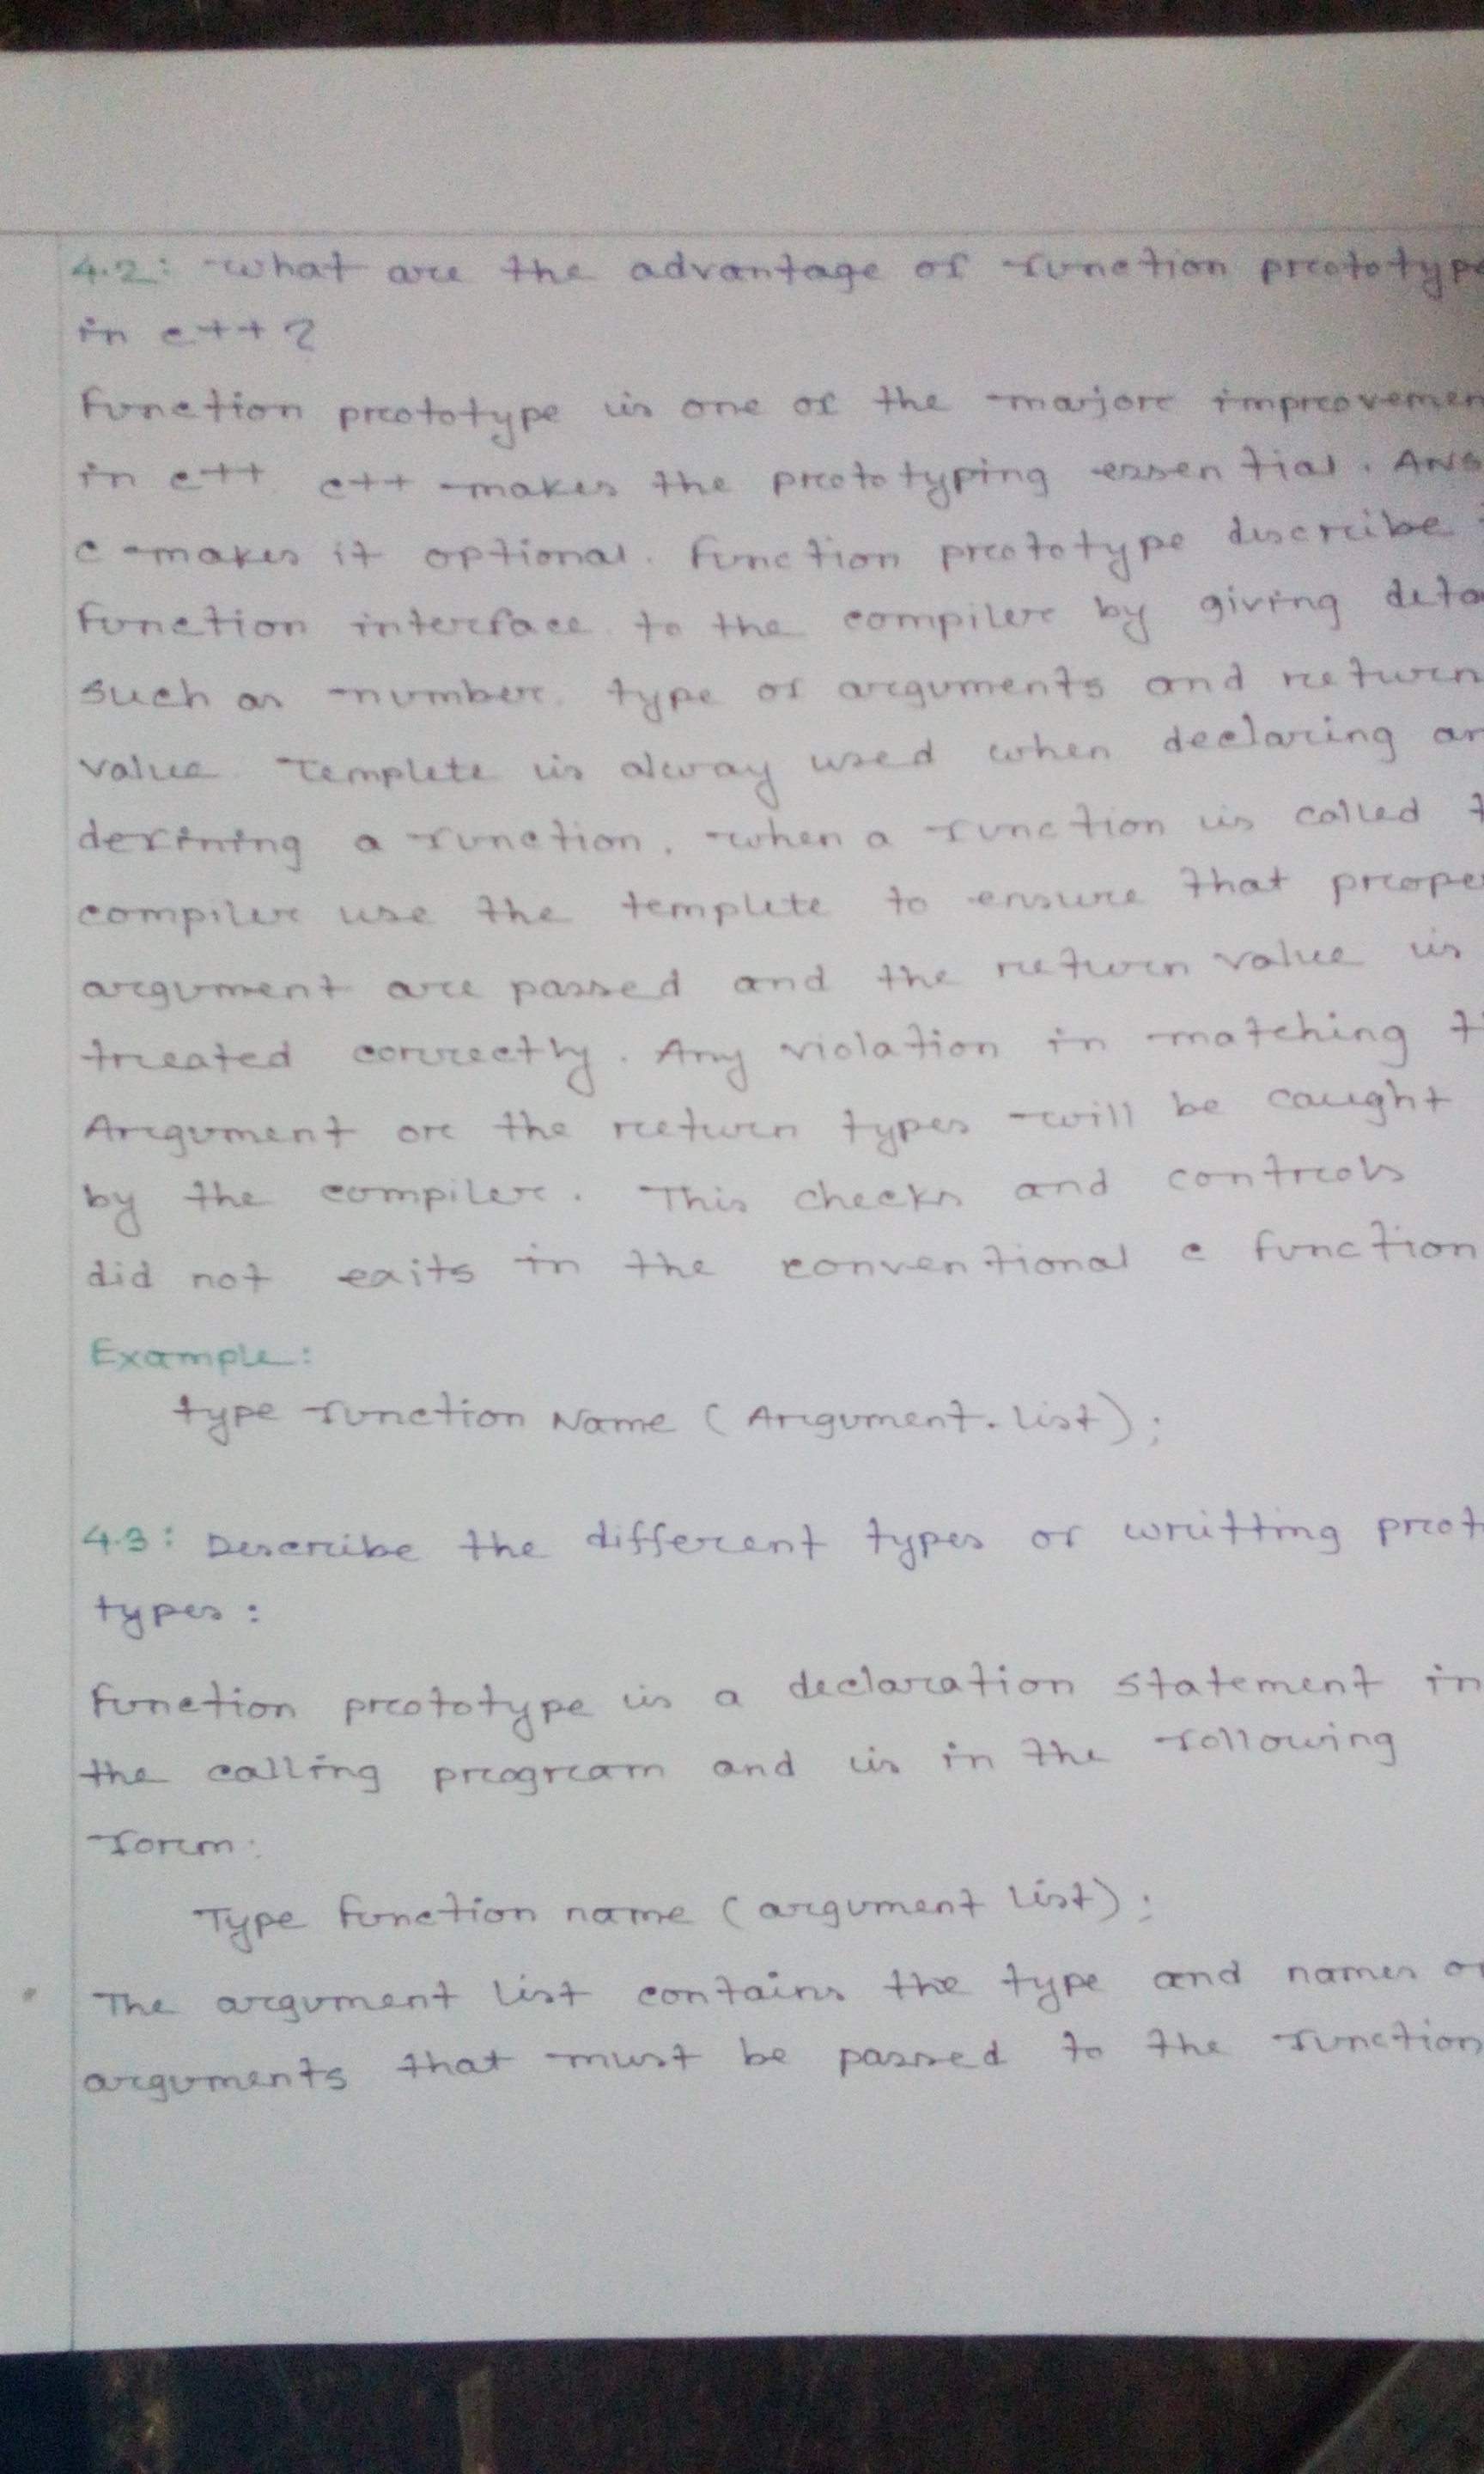 4.2: what are the advantage of function prototype
in c++ ?
function prototype is one of the marjor improvemen
in c++ c++ makes the prototyping essential. And
c makes it optional. function prototype discribe
function interface to the compiler by giving deta
such as number, type of arguments and return
value. Templete is alway used when declaring an
defining a function. when a function is called t
compiler use the templete to ensure that proper
argument are passed and the return value is
treated correctly. Any violation in matching t
Argument or the return types will be caught
by the compiler. This checks and controls
did not exits in the conventional c function
Example:
type function Name (Argument. list);
4.3: Describe the different types of writting prot
types:
function prototype is a declaration statement in
the calling program and is in the following
form:
Type function name (argument list);
The argument list contains the type and names of
arguments that must be passed to the function